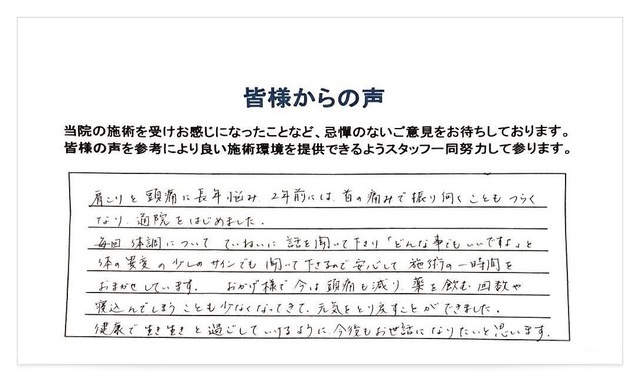 皆様からの声
当院の施術を受けお感じになったことなど、忌憚のないご意見をお待ちしております。
皆様の声を参考により良い施術環境を提供できるようスタッフ一同努力して参ります。
肩こりと頭痛に長年悩み 2年前には、首の痛みで振り向くこともつらく
なり、通院をはじめました。
毎回 体調について ていねいに 話を聞いて下さり「どんな事でもいいですよ」と
体の異変の少しのサインでも 聞いて下さるので安心して 施術の一時間を
おまかせしています。 おかげ様で今は頭痛も減り、薬を飲む回数や
寝込んでしまうことも少なくなってきて、元気をとり戻すことができました。
健康で生き生きと過ごしていけるように、今後もお世話になりたいと思います。